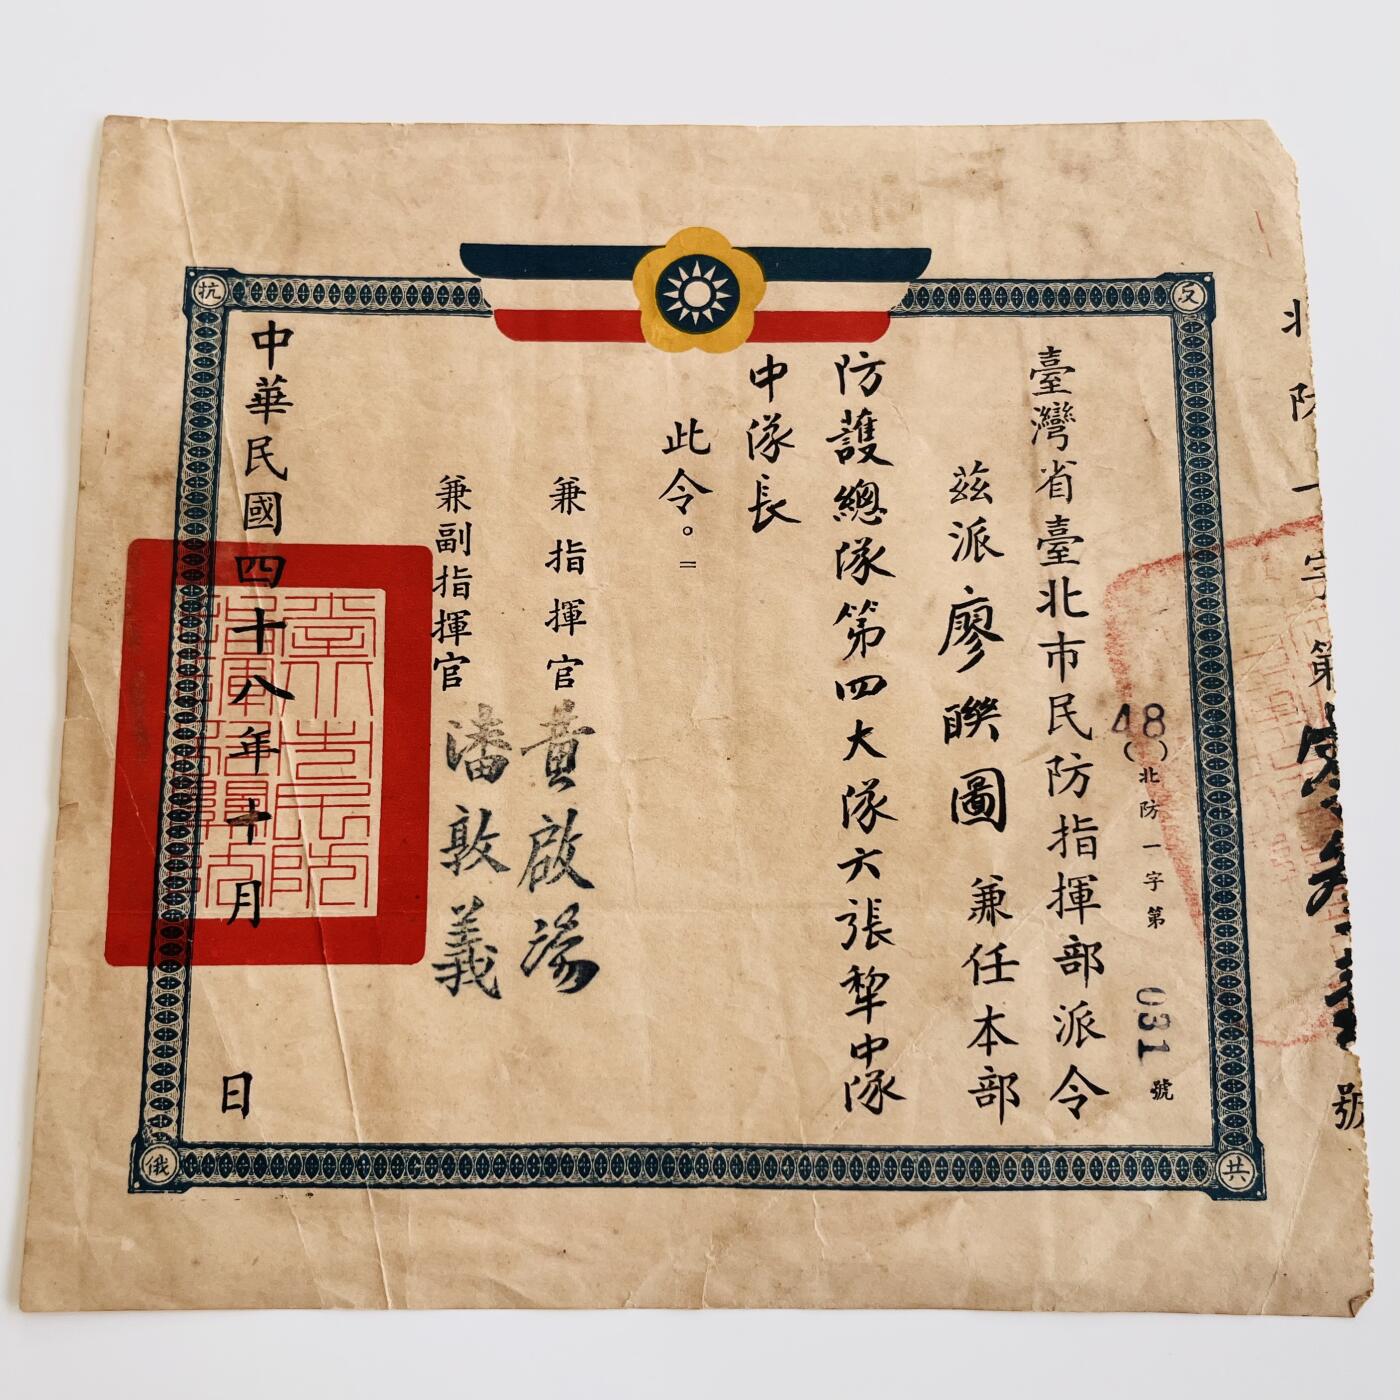 北防一字第 號
(48)北防一字第031號
臺灣省臺北市民防指揮部派令
茲派廖聯圖兼任本部
防護總隊第四大隊六張犁中隊
中隊長
此令。=
兼指揮官黃啟瑞
兼副指揮官潘敦義
中華民國四十八年十月 日
反
共
抗
俄